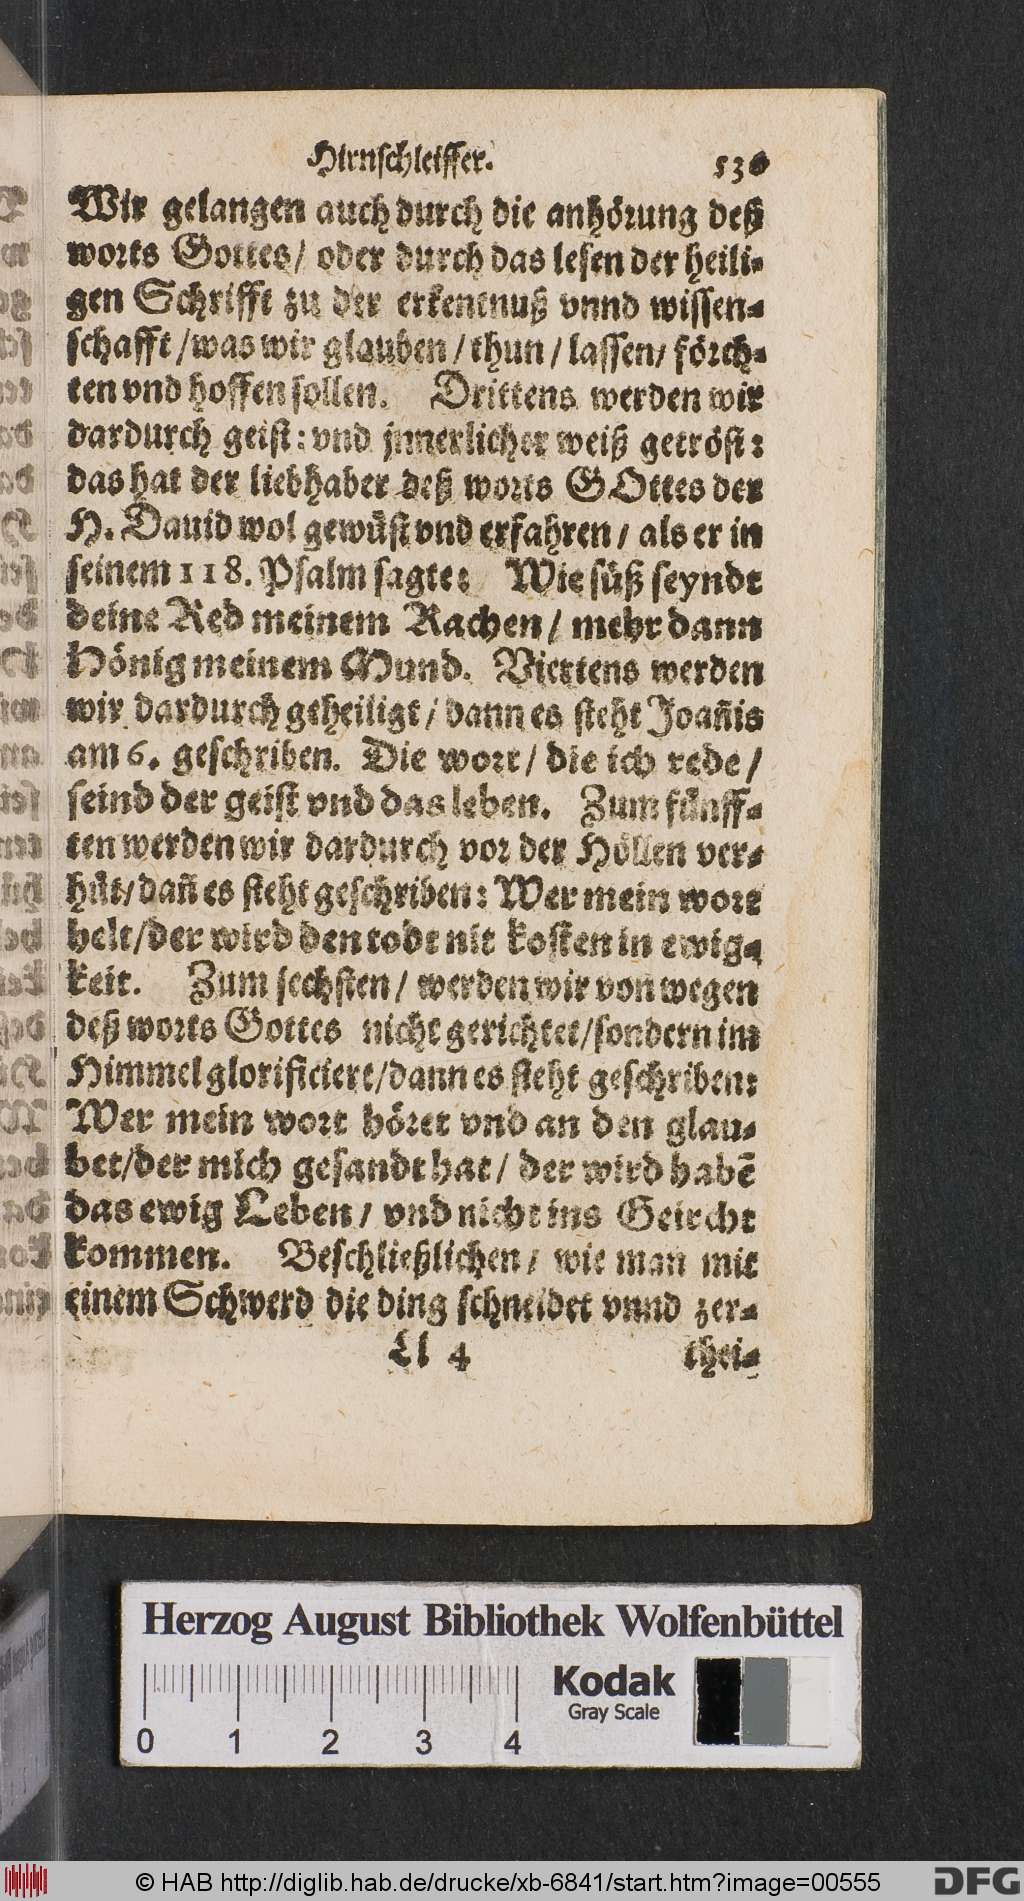 Hirnschleiffer.
Wir gelangen auch durch die anhörung deß
worts Gottes/ oder durch das lesen der heili-
gen Schrifft zu der erkentnuß vnnd wissen-
schafft /was wir glauben / thun / lassen/ förch-
ten vnd hoffen sollen. Drittens werden wir
dardurch geist: vnd jnnerlicher weiß getröst:
das hat der liebhaber deß worts GOttes der
H. Dauid wol gewüst vnd erfahren / als er in
seinem 118. Psalm sagte: Wie süß seyndt
deine Red meinem Rachen / mehr dann
Hönig meinem Mund. Viertens werden
wir dardurch geheiligt / dann es steht Joañis
am 6. geschriben. Die wort / die ich rede /
seind der geist vnd das leben. Zum fünff-
ten werden wir dardurch vor der Höllen ver-
hüt/ dañ es steht geschriben: Wer mein wort
helt/der wird den todt nit kosten in ewig-
keit. Zum sechsten / werden wir von wegen
deß worts Gottes nicht gerichtet/sondern im
Himmel glorificiert/dann es steht geschriben:
Wer mein wort höret vnd an den glau-
bet/der mich gesandt hat / der wird habē
das ewig Leben / vnd nicht ins Geircht
kommen. Beschließlichen / wie man mit
einem Schwerd die ding schneidet vnnd zer-
Ll 4 thei-
Herzog August Bibliothek Wolfenbüttel
Kodak
Gray Scale
0 1 2 3 4
© HAB http://diglib.hab.de/drucke/xb-6841/start.htm?image=00555
DFG